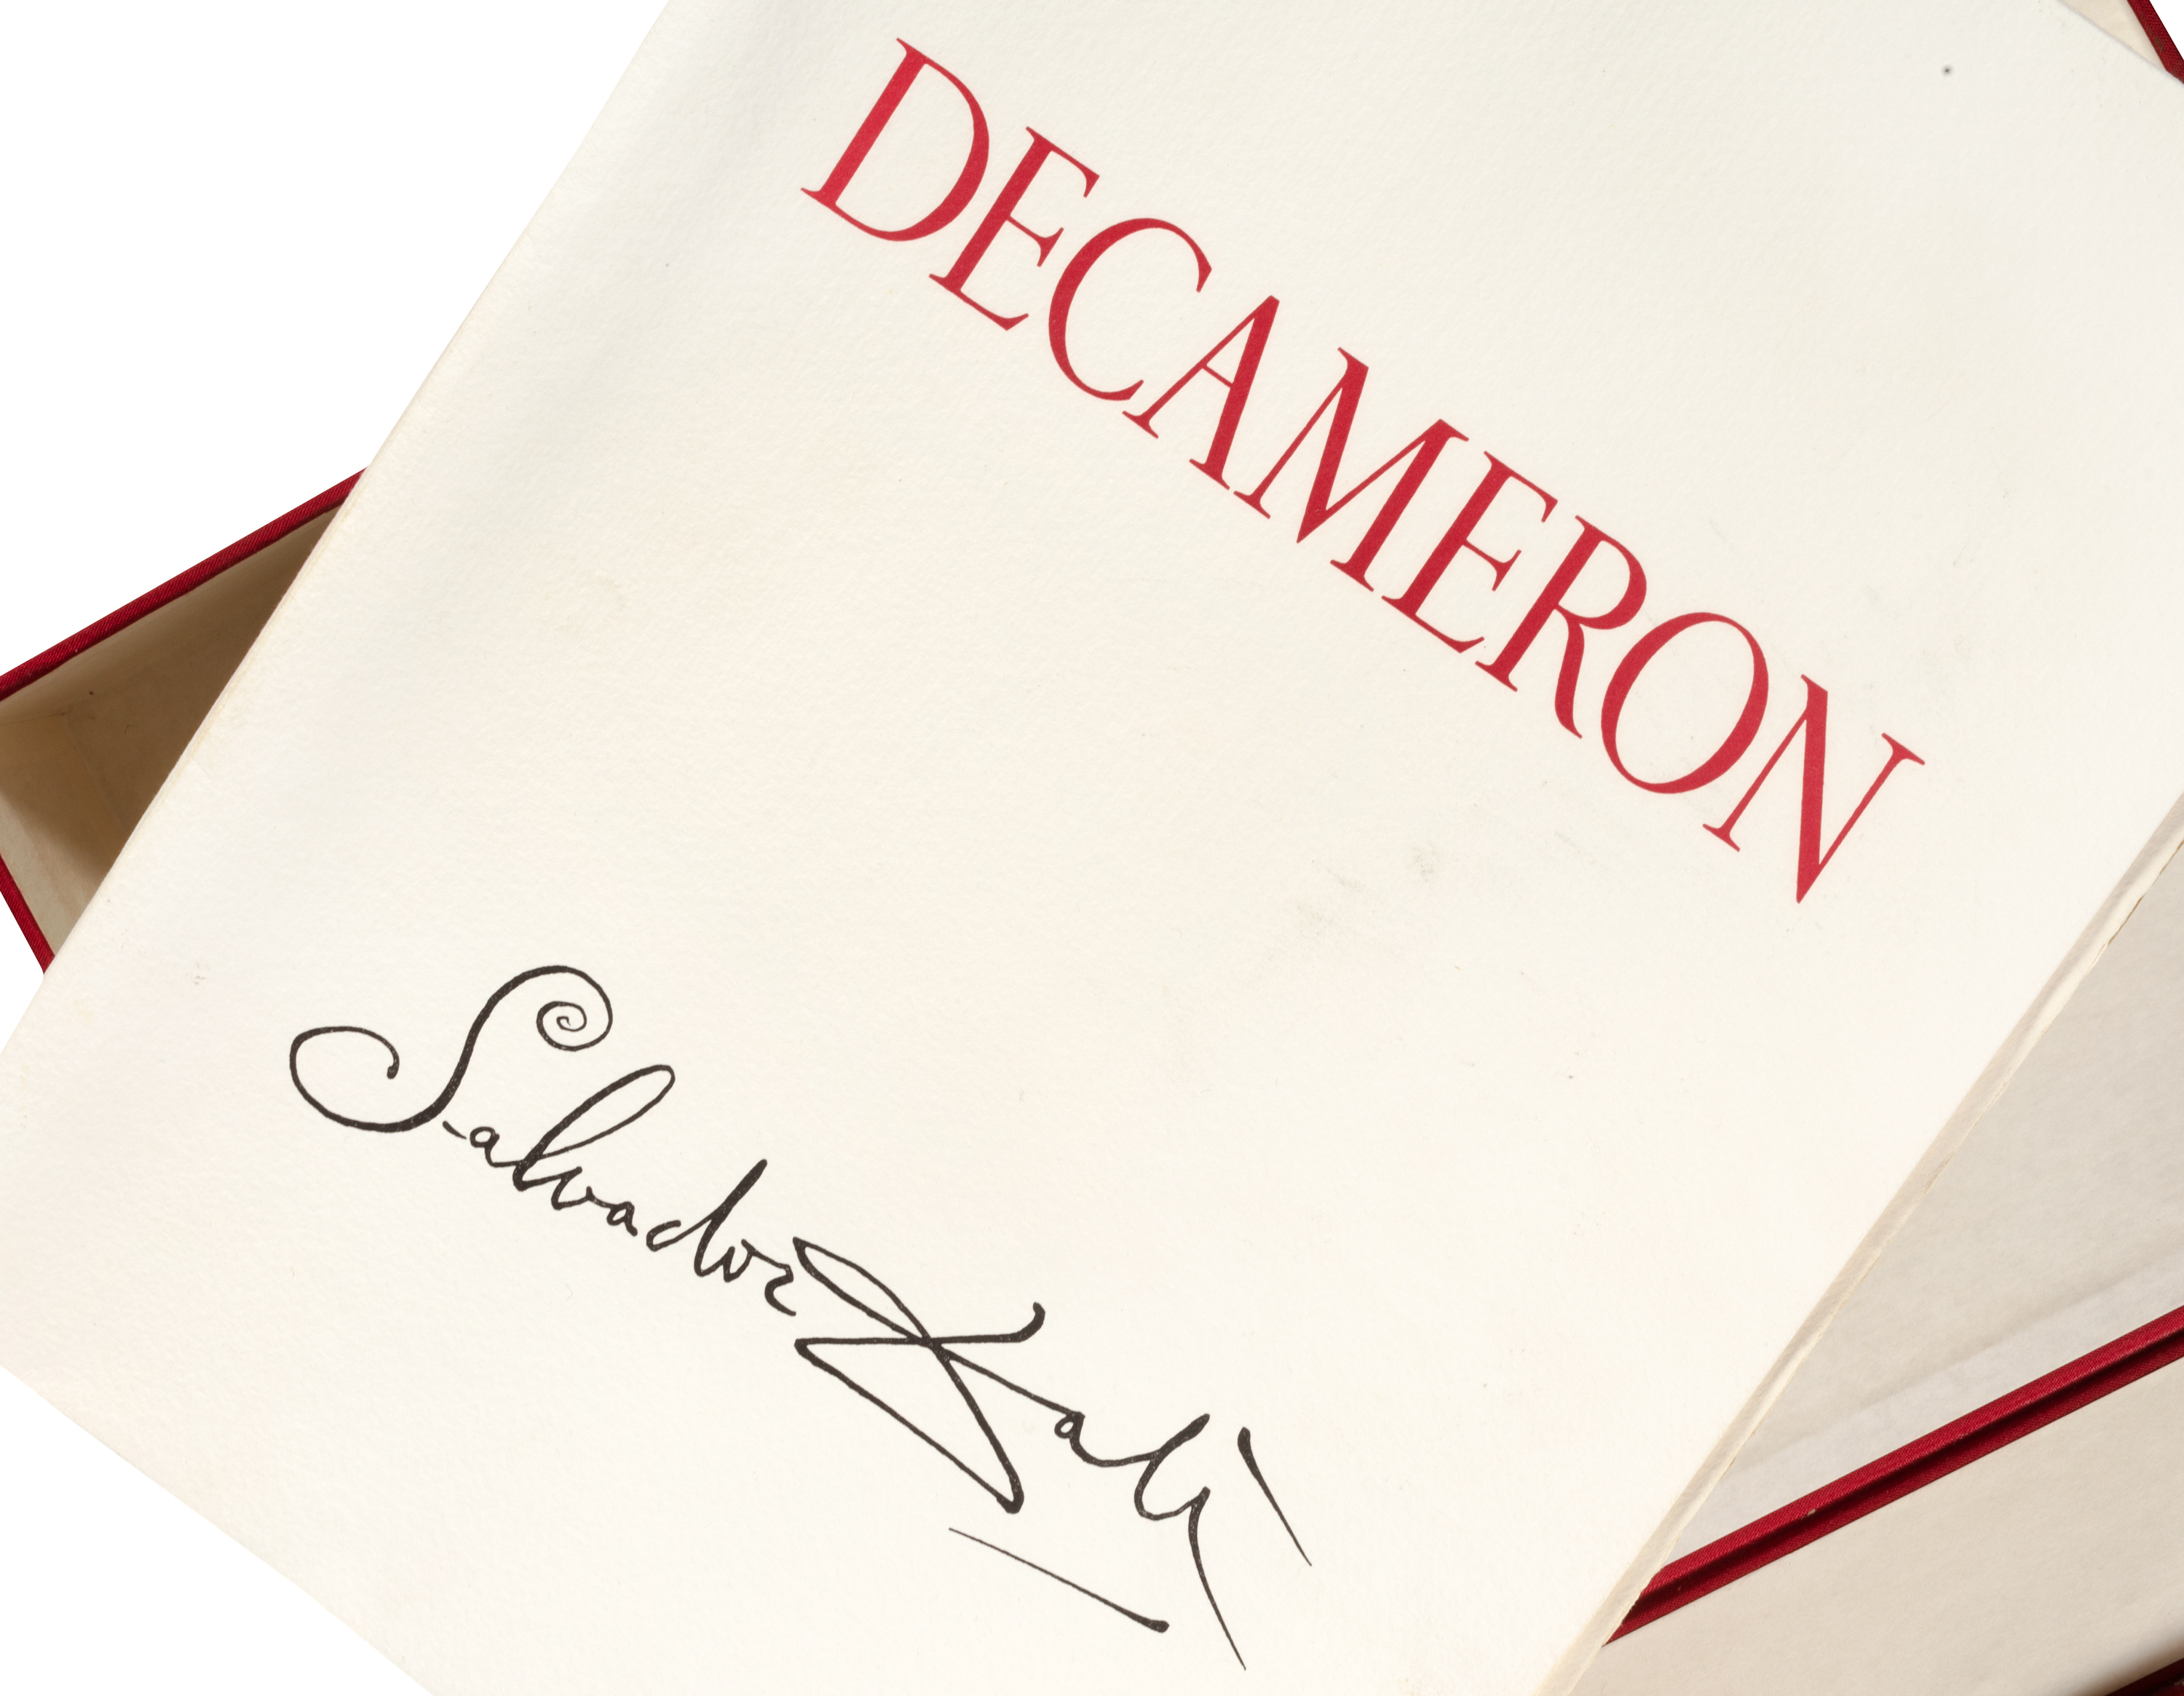 DECAMERON
Salvador Dalí